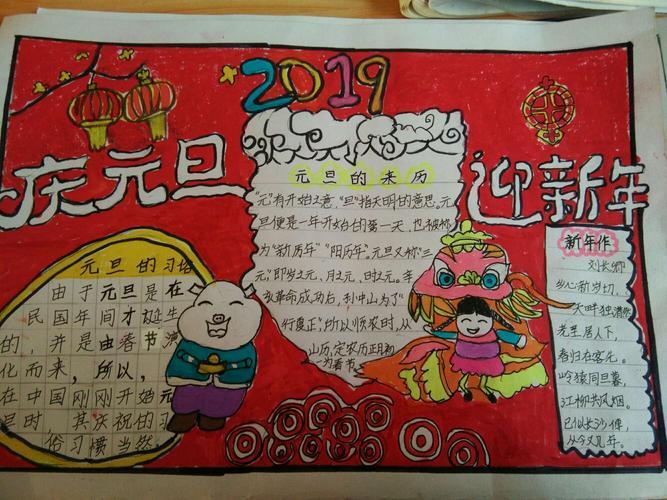 2019
庆元旦
迎新年
元旦的来历
"元"有开始之意，"旦"指天明的意思。元
旦便是一年开始的第一天，也被称
为"新历年""阳历年"。元旦又称"三
元"，即岁之元、月之元、时之元。辛
亥革命成功后，孙中山为了"
行夏正"，所以顺农时，从
山历，定农历正月初
为春节
元旦的习俗
由于元旦是在
民国年间才诞生
的，并是由春节演
化而来，所以，
在中国刚刚开始元
旦时，其庆祝的习
俗习惯当然
新年作
刘长卿
乡心新岁切，
天畔独潸然
老至居人下，
春归在客先。
岭猿同旦暮，
江柳共风烟。
已似长沙傅，
从今又几年。